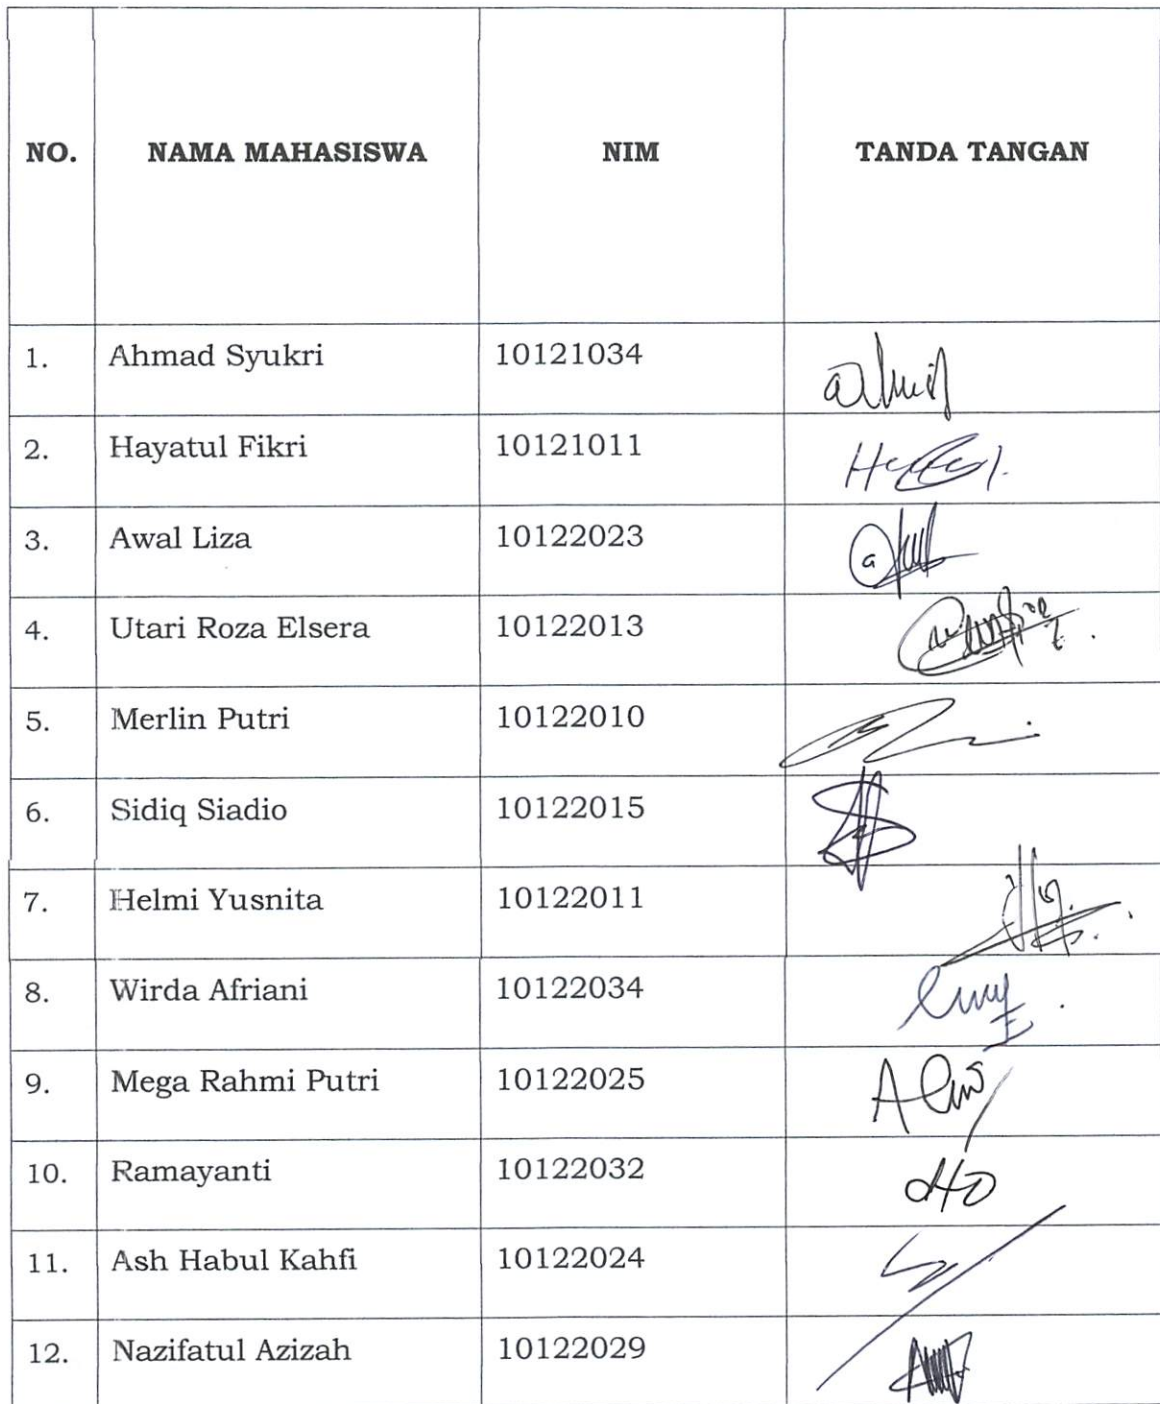 NO. NAMA MAHASISWA NIM TANDA TANGAN
1. Ahmad Syukri 10121034
2. Hayatul Fikri 10121011
3. Awal Liza 10122023
4. Utari Roza Elsera 10122013
5. Merlin Putri 10122010
6. Sidiq Siadio 10122015
7. Helmi Yusnita 10122011
8. Wirda Afriani 10122034
9. Mega Rahmi Putri 10122025
10. Ramayanti 10122032
11. Ash Habul Kahfi 10122024
12. Nazifatul Azizah 10122029